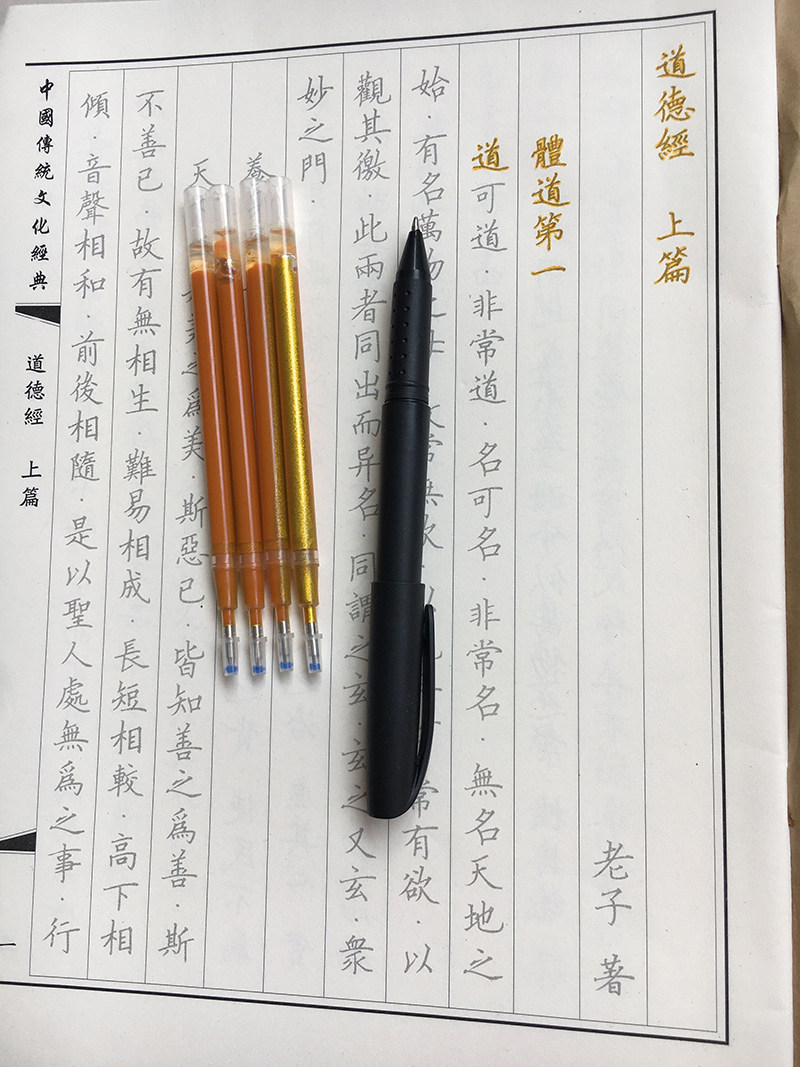 道德經 上篇
老子 著
體道第一
道可道·非常道·名可名·非常名·無名天地之
始·有名萬物之 常無欲·以 常有欲·以
觀其徼·此兩者同出而异名·同謂之玄·玄之又玄·衆
妙之門·
養
天 美之爲美·斯惡已·皆知善之爲善·斯
不善已·故有無相生·難易相成·長短相較·高下相
傾·音聲相和·前後相隨·是以聖人處無爲之事·行
中國傳統文化經典
道德經 上篇